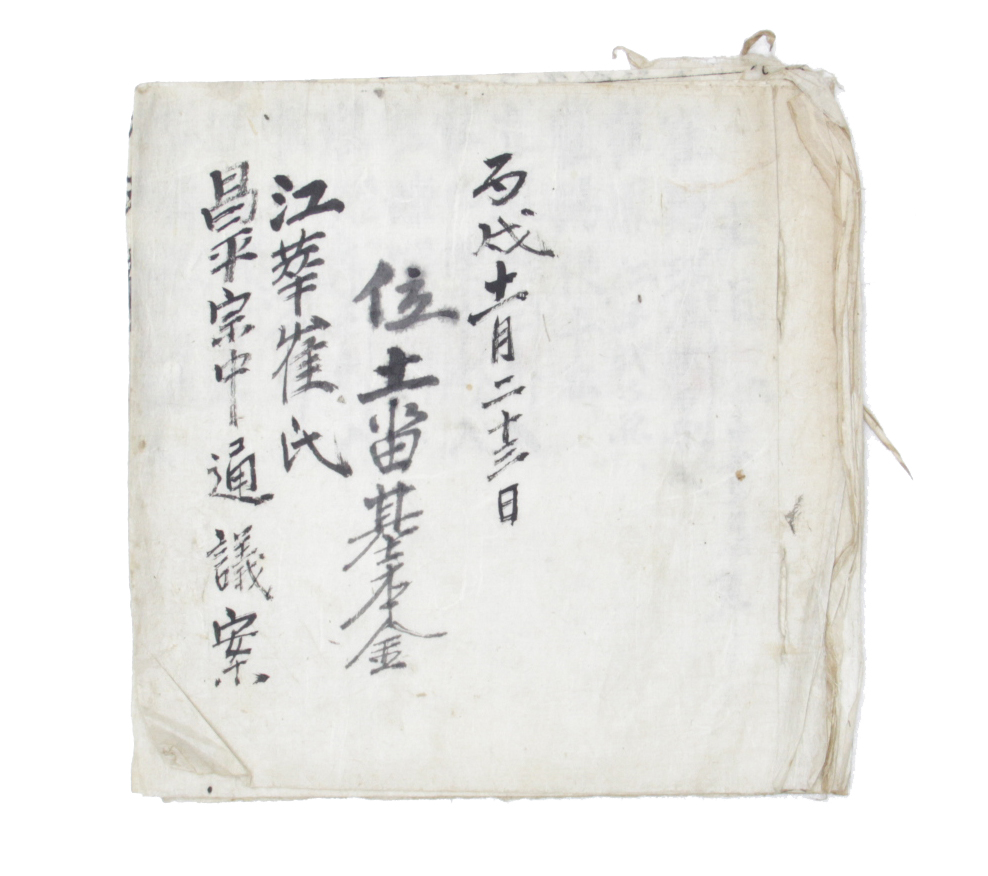 丙戌十一月二十三日
位土畓基本金
江華崔氏
昌平宗中通議案